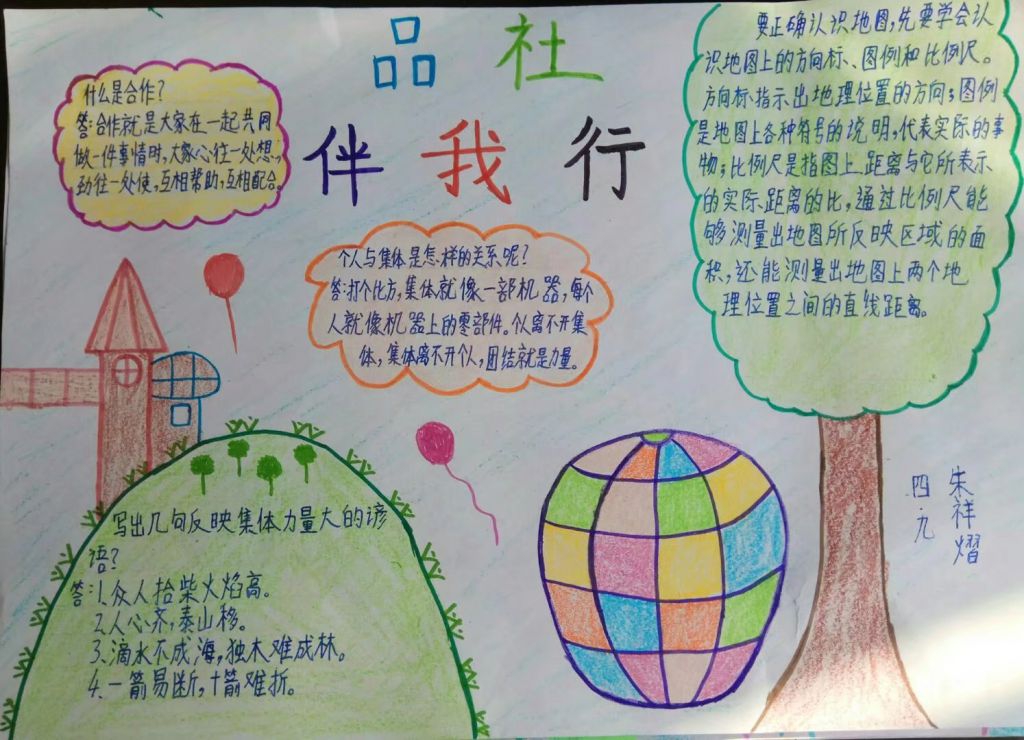 品社
伴我行
什么是合作?
答:合作就是大家在一起共同
做一件事情时,大家心往一处想,
劲往一处使,互相帮助,互相配合。
个人与集体是怎样的关系呢?
答:打个比方,集体就像一部机器,每个
人就像机器上的零部件。个人离不开集
体,集体离不开个人,团结就是力量。
要正确认识地图,先要学会认
识地图上的方向标、图例和比例尺。
方向标指示出地理位置的方向;图例
是地图上各种符号的说明,代表实际的事
物;比例尺是指图上距离与它所表示
的实际距离的比,通过比例尺能
够测量出地图所反映区域的面
积,还能测量出地图上两个地
理位置之间的直线距离。
写出几句反映集体力量大的谚
语?
答:1.众人拾柴火焰高。
2.人心齐,泰山移。
3.滴水不成海,独木难成林。
4.一箭易断,十箭难折。
四.九
朱祥熠